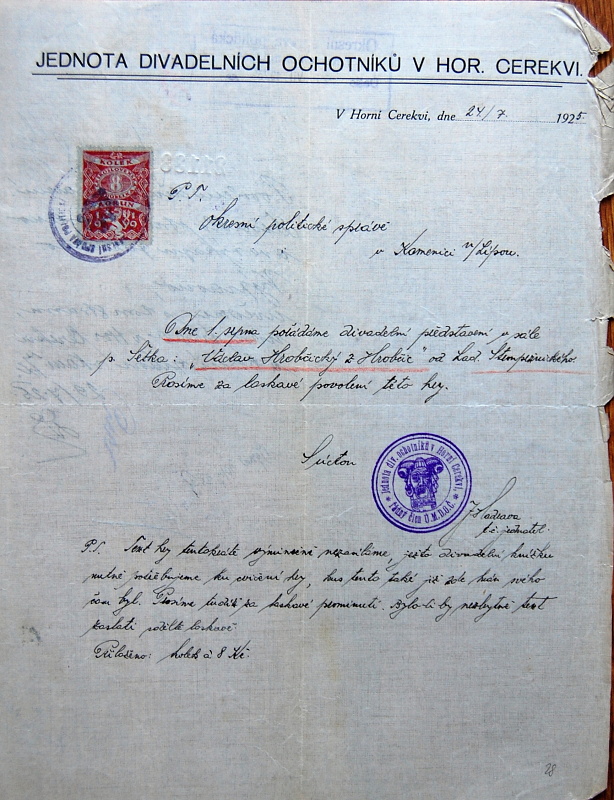 JEDNOTA DIVADELNÍCH OCHOTNÍKŮ V HOR. CEREKVI.
V Horní Cerekvi, dne 24/7 1925
KOLEK
8
KORUN
P. T.
Okresní politické správě
v Kamenici n/Lipou.
Dne 1. srpna pořádáme divadelní představení v sále
p. Sětka: „Václav Hrobčický z Hrobčic" od Lad. Stroupežnického.
Prosíme za laskavé povolení této hry.
S úctou
Jednota div. ochotníků v Horní Cerekvi.
řádný člen Ú.M.D.O.Č.
t. č. jednatel.
P. T. Text hry tentokráte výminečně nezasíláme, ježto divadelní knížku
nutně potřebujeme ku cvičení hry, kus tento také již zde hrán svého
času byl. Prosíme tudíž za laskavé prominutí. Bylo-li by nezbytně text
zaslati sdělte laskavě
Přiloženo: kolek à 8 Kč.
28